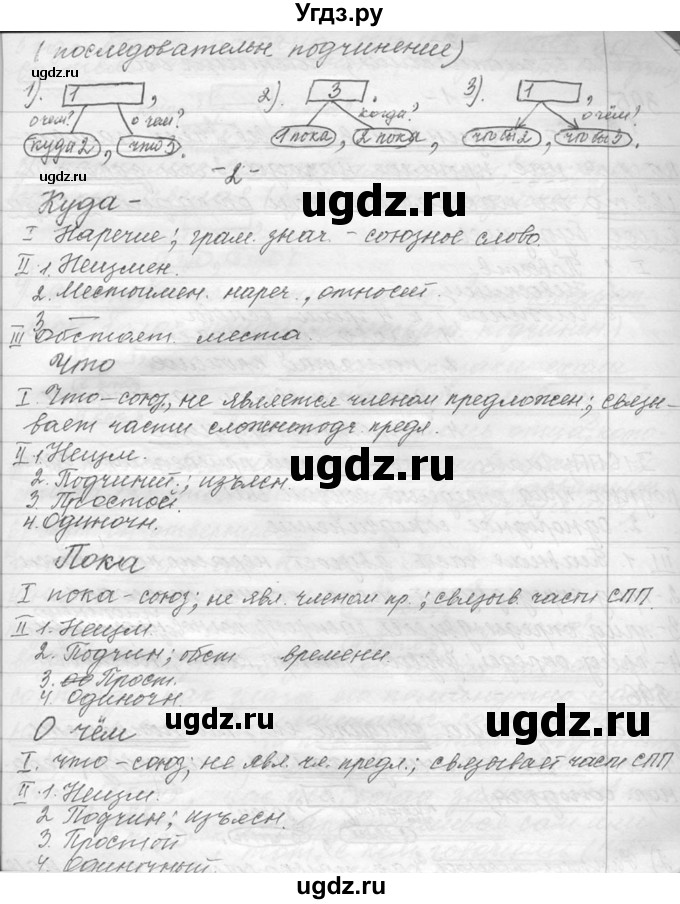 Угдз.ру
( последовательн подчинение)
1). [1], 2). [3]. 3). [1],
о чем? о чем? когда? о чём?
(куда 2), (что 3). (1 пока), (2 пока), (чтобы 2), (чтобы 3).
-2-
Куда -
I Наречие; грам. знач. - союзное слово.
II 1. Неизмен.
2. Местоимен. нареч., относит.
3. —
III Обстоят. места.
Что
I. Что - союз, не является членом предложен; связы-
вает части сложноподч предл.
II 1 Неизм.
2. Подчинит.; изъясн.
3. Простой.
4. Одиночн.
Пока
I пока - союз; не явл. членом пр.; связыв. части СПП.
II 1. Неизм.
2. Подчин; обст времени.
3. Прост.
4. Одиночн.
О чём
I. что - союз; не явл. чл. предл.; связывает части СПП
II 1. Неизм.
2 Подчин; изъясн.
3. Простой
4. Одиночный.
ugdz.ru
ugdz.ru
ugdz.ru
ugdz.ru
ugdz.ru
ugdz.ru
ugdz.ru
ugdz.ru
ugdz.ru
ugdz.ru
ugdz.ru
ugdz.ru